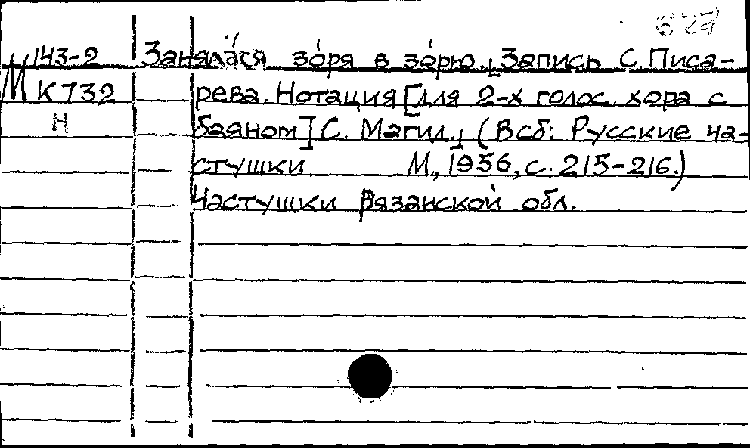 М 143-2 Занялася зо́ря в зо́рю. Запись С. Писа-
К 732 рева. Нотация [для 2-х голос. хора с
Н баяном] С. Магид. (В сб: Русские ча-
стушки М., 1956, с. 215-216.)
Частушки Рязанской обл.